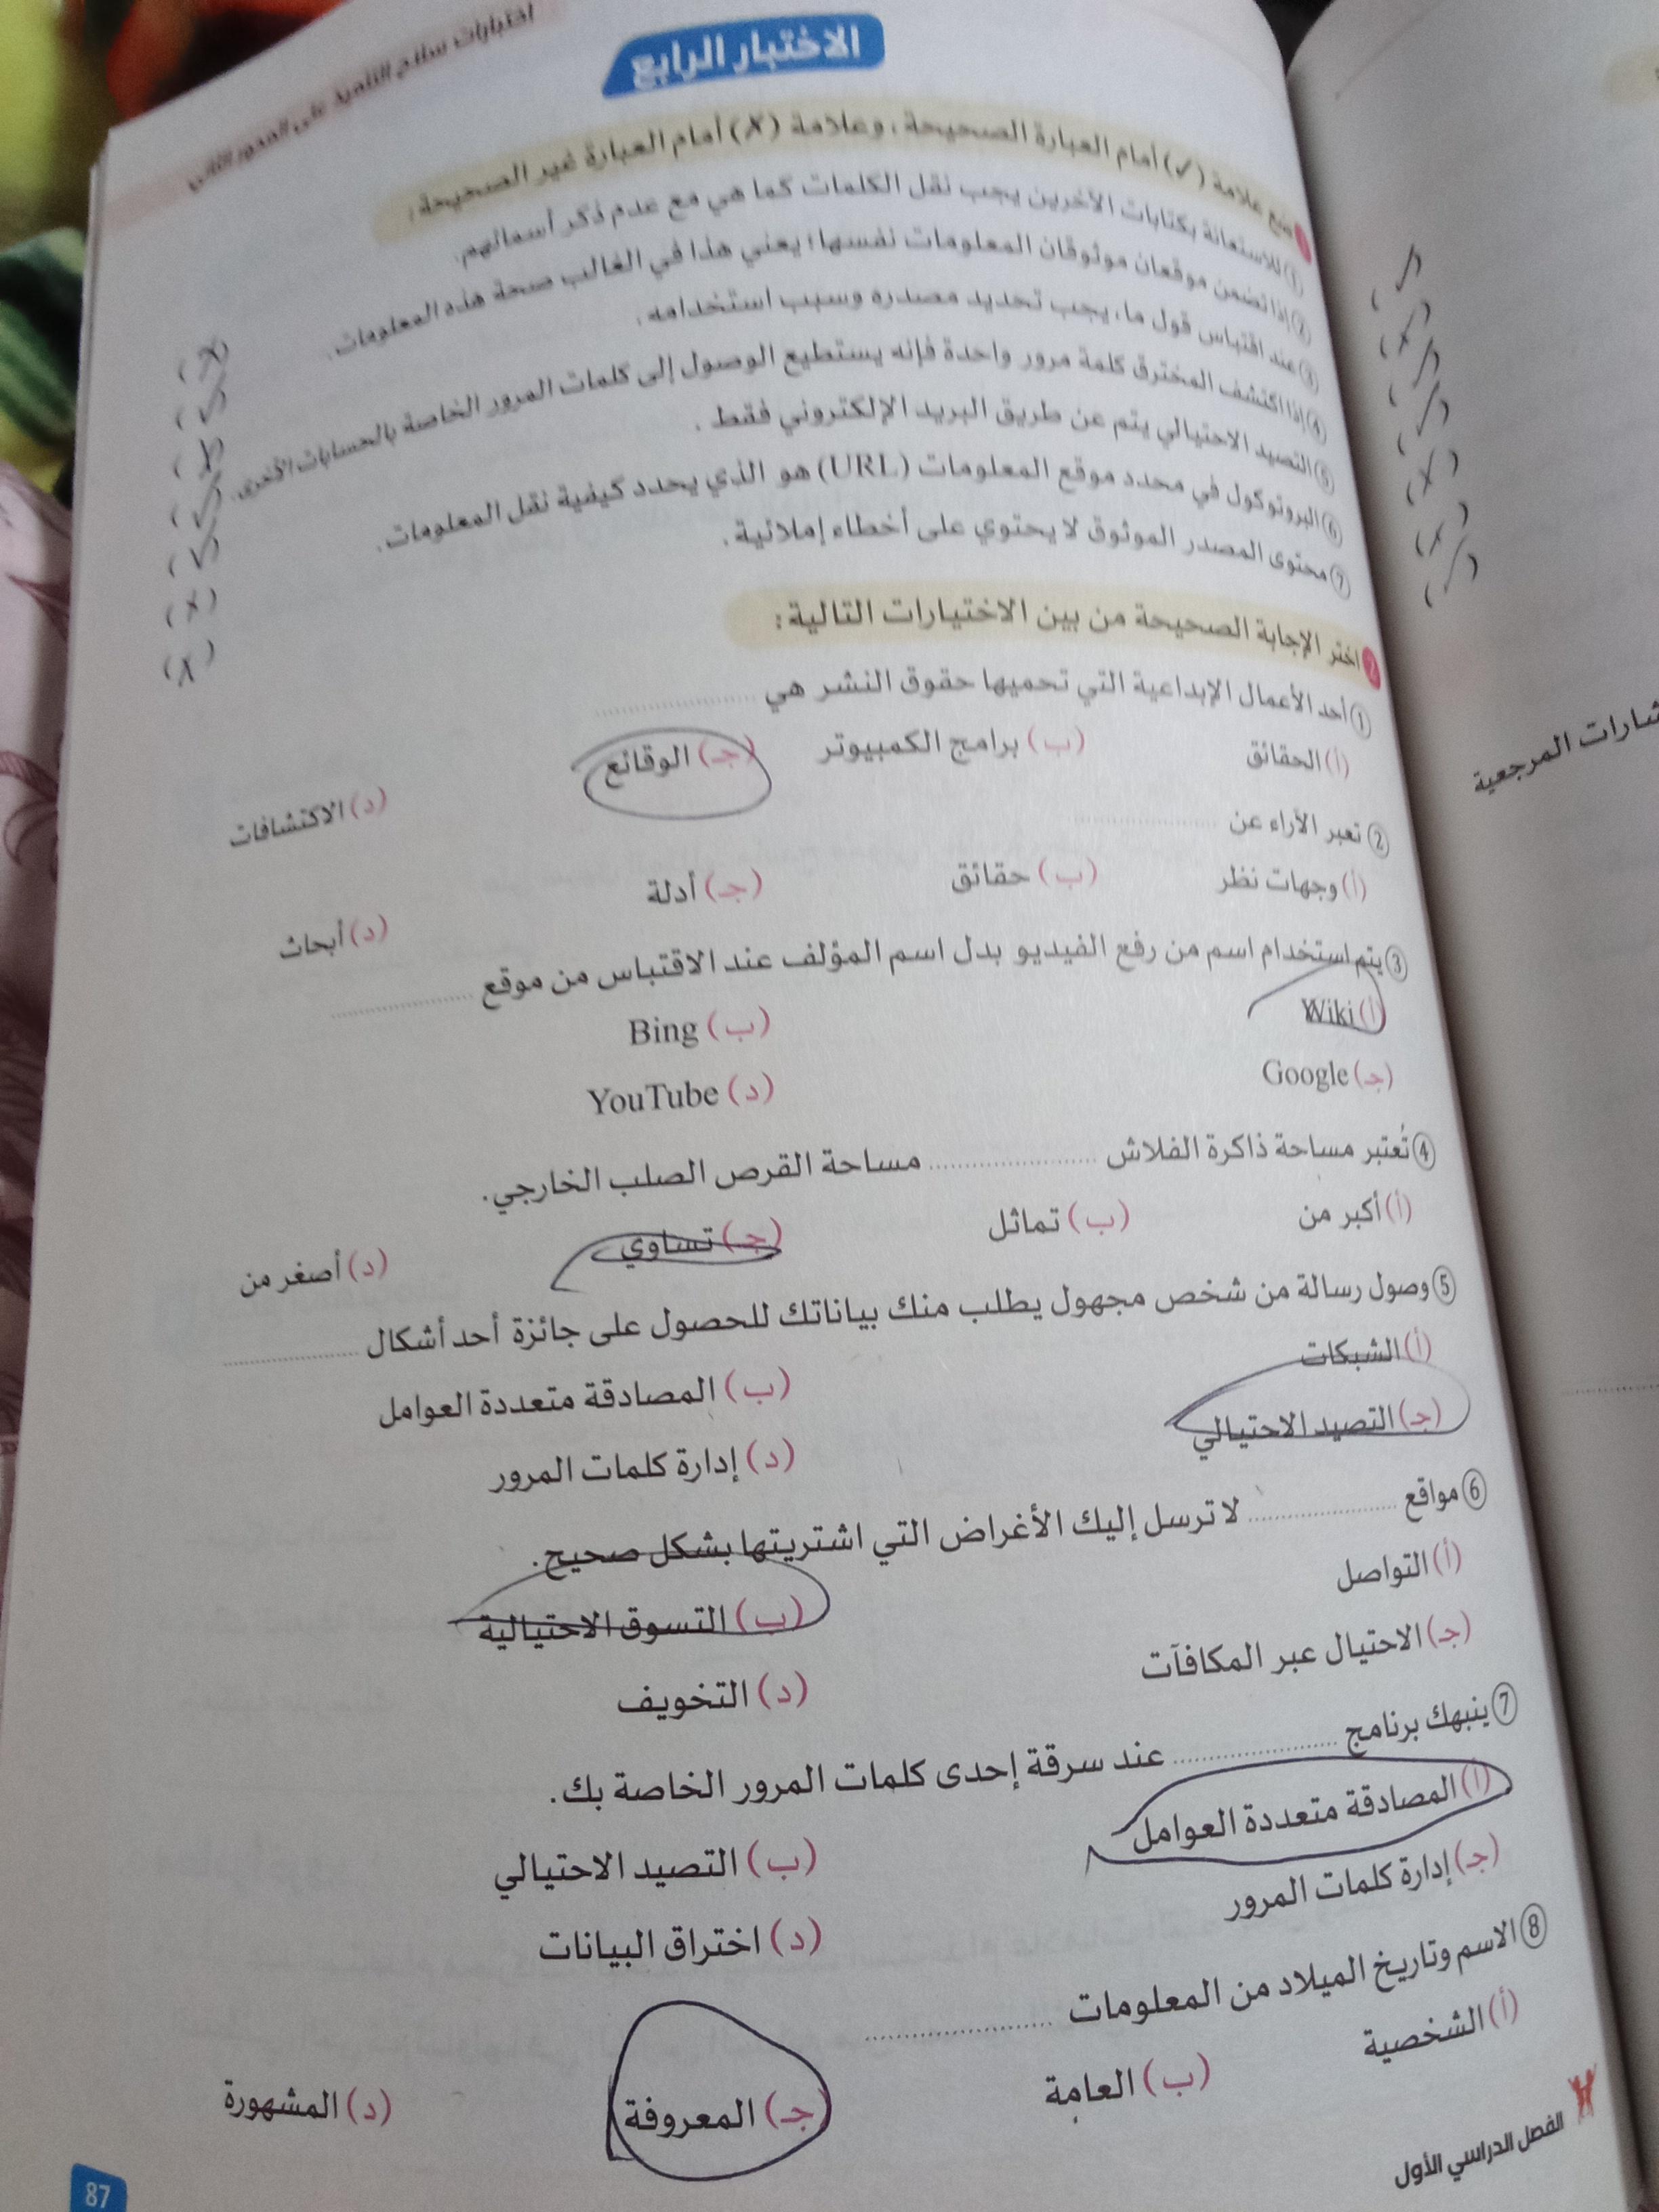 اختبارات سلاح التلميذ على المحور الثاني
الاختبار الرابع
1 ضع علامة (✓) أمام العبارة الصحيحة، وعلامة (✗) أمام العبارة غير الصحيحة:
① للاستعانة بكتابات الآخرين يجب نقل الكلمات كما هي مع عدم ذكر أسمائهم. (✗)
② إذا تضمن موقعان موثوقان المعلومات نفسها؛ يعني هذا في الغالب صحة هذه المعلومات. (✓)
③ عند اقتباس قول ما، يجب تحديد مصدره وسبب استخدامه.
④ إذا اكتشف المخترق كلمة مرور واحدة فإنه يستطيع الوصول إلى كلمات المرور الخاصة بالحسابات الأخرى. (✓)
⑤ التصيد الاحتيالي يتم عن طريق البريد الإلكتروني فقط. (✓)
⑥ البروتوكول في محدد موقع المعلومات (URL) هو الذي يحدد كيفية نقل المعلومات. (✗)
⑦ محتوى المصدر الموثوق لا يحتوي على أخطاء إملائية. (✗)
2 اختر الإجابة الصحيحة من بين الاختيارات التالية:
① أحد الأعمال الإبداعية التي تحميها حقوق النشر هي ..................
(أ) الحقائق (ب) برامج الكمبيوتر (جـ) الوقائع (د) الاكتشافات
② تعبر الآراء عن ..................
(أ) وجهات نظر (ب) حقائق (جـ) أدلة (د) أبحاث
③ يتم استخدام اسم من رفع الفيديو بدل اسم المؤلف عند الاقتباس من موقع ..................
(أ) Wiki (ب) Bing
(جـ) Google (د) YouTube
④ تُعتبر مساحة ذاكرة الفلاش .................. مساحة القرص الصلب الخارجي.
(أ) أكبر من (ب) تماثل (جـ) تساوي (د) أصغر من
⑤ وصول رسالة من شخص مجهول يطلب منك بياناتك للحصول على جائزة أحد أشكال ..................
(أ) الشبكات (ب) المصادقة متعددة العوامل
(جـ) التصيد الاحتيالي (د) إدارة كلمات المرور
⑥ مواقع .................. لا ترسل إليك الأغراض التي اشتريتها بشكل صحيح.
(أ) التواصل (ب) التسوق الاحتيالية
(جـ) الاحتيال عبر المكافآت (د) التخويف
⑦ ينبهك برنامج .................. عند سرقة إحدى كلمات المرور الخاصة بك.
(أ) المصادقة متعددة العوامل (ب) التصيد الاحتيالي
(جـ) إدارة كلمات المرور (د) اختراق البيانات
⑧ الاسم وتاريخ الميلاد من المعلومات ..................
(أ) الشخصية (ب) العامة (جـ) المعروفة (د) المشهورة
الفصل الدراسي الأول
87
(✓)
(✗)
(✓)
(✓)
(✗)
(✗)
(✓)
المرجعية